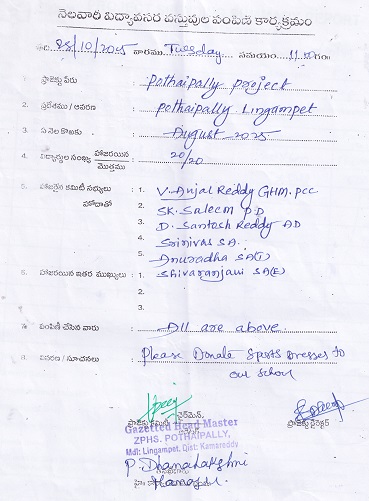 నెలవారీ విద్యావసర వస్తువుల పంపిణీ కార్యక్రమం
28/10/2025 వారము Tuesday సమయం 11
1. ప్రాజెక్టు పేరు Pothaipally project
2. ప్రదేశము / ఆవరణ Pothaipally Lingampet
3. ఏ నెల కొరకు August 2025
4. విద్యార్థుల సంఖ్య హాజరయిన / మొత్తము 20/20
5. హాజరైన కమిటీ సభ్యులు హోదాతో 1. V. Anjal Reddy GHM. PCC
2. SK. Saleem P D
3. D. Santosh Reddy AD
4. Srinivas SA.
5. Anuradha SA(T)
6. హాజరయిన ఇతర ముఖ్యులు 1. Shivaranjani SA(E)
2.
3.
7. పంపిణీ చేసిన వారు All are above.
8. వివరణ / సూచనలు Please Donate Sports Dresses to
our School
ప్రాజెక్టు కమిటీ ఛైర్మెన్, ప్రాజెక్టు డైరెక్టర్
Gazetted Head Master
ZPHS. POTHAIPALLY,
Mdl: Lingampet, Dist: Kamareddy
P. Dhanalakshmi
Manager.